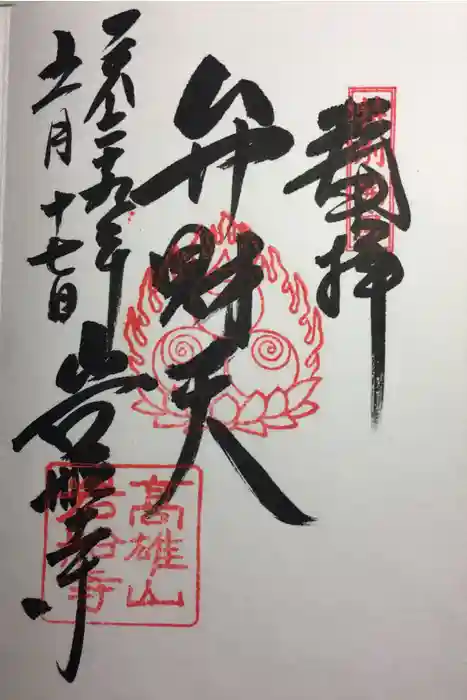 拝
弁財天
平成二十九年
十一月十七日
岩船寺
高雄山
岩船寺